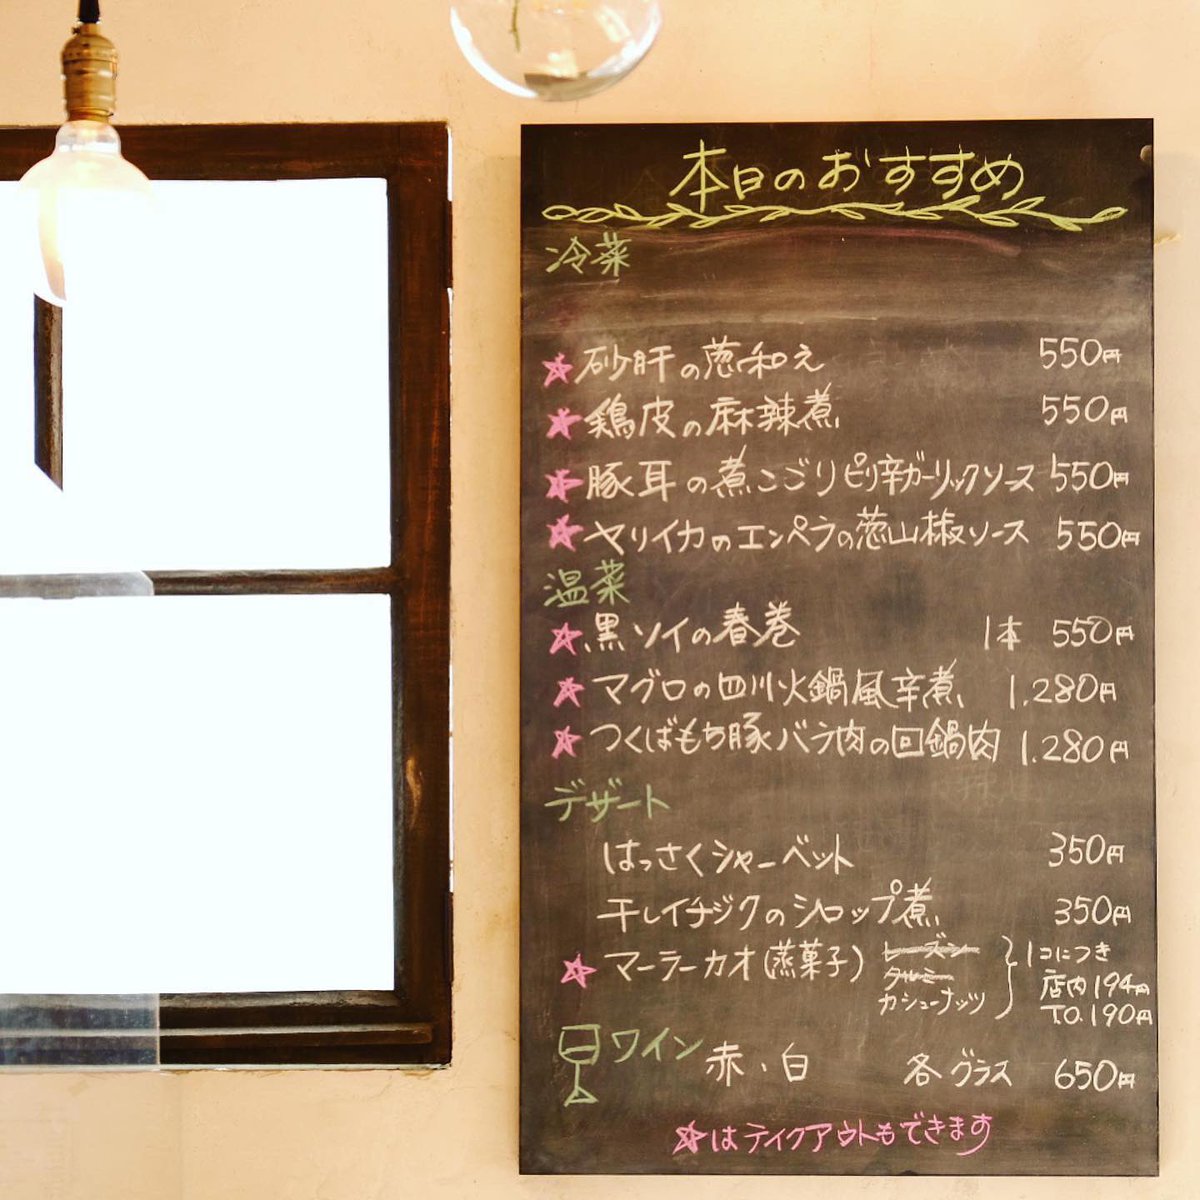 本日のおすすめ
冷菜
☆砂肝の葱和え 550円
☆鶏皮の麻辣煮 550円
☆豚耳の煮こごりピリ辛ガーリックソース 550円
☆ヤリイカのエンペラの葱山椒ソース 550円
温菜
☆黒ソイの春巻 1本 550円
☆マグロの四川火鍋風辛煮 1.280円
☆つくばもち豚バラ肉の回鍋肉 1.280円
デザート
はっさくシャーベット 350円
干しイチジクのシロップ煮 350円
☆マーラーカオ(蒸菓子)
レーズン
クルミ
カシューナッツ
1コにつき
店内194円
T.O.190円
ワイン 赤・白 各グラス 650円
☆はテイクアウトもできます